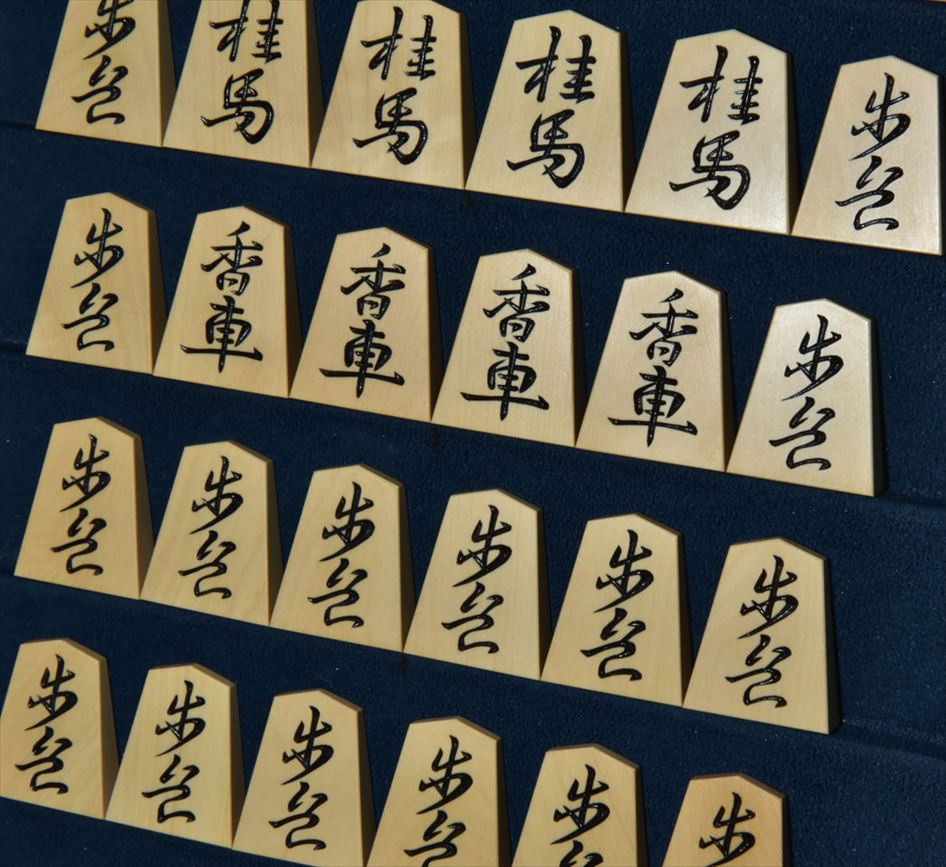 歩兵 桂馬 桂馬 桂馬 桂馬 歩兵
歩兵 香車 香車 香車 香車 歩兵
歩兵 歩兵 歩兵 歩兵 歩兵 歩兵
歩兵 歩兵 歩兵 歩兵 歩兵 歩